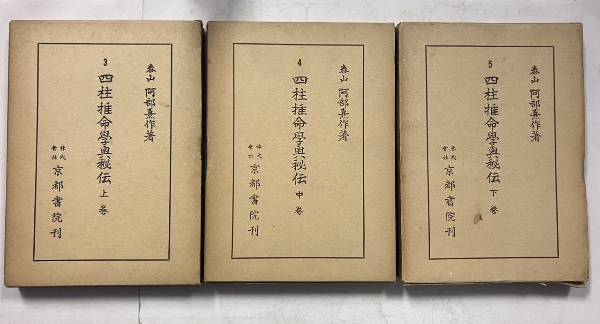 3
泰山 阿部熹作著
四柱推命學奥秘伝 上巻
株式会社 京都書院刊
4
泰山 阿部熹作著
四柱推命學奥秘伝 中巻
株式会社 京都書院刊
5
泰山 阿部熹作著
四柱推命學奥秘伝 下巻
株式会社 京都書院刊